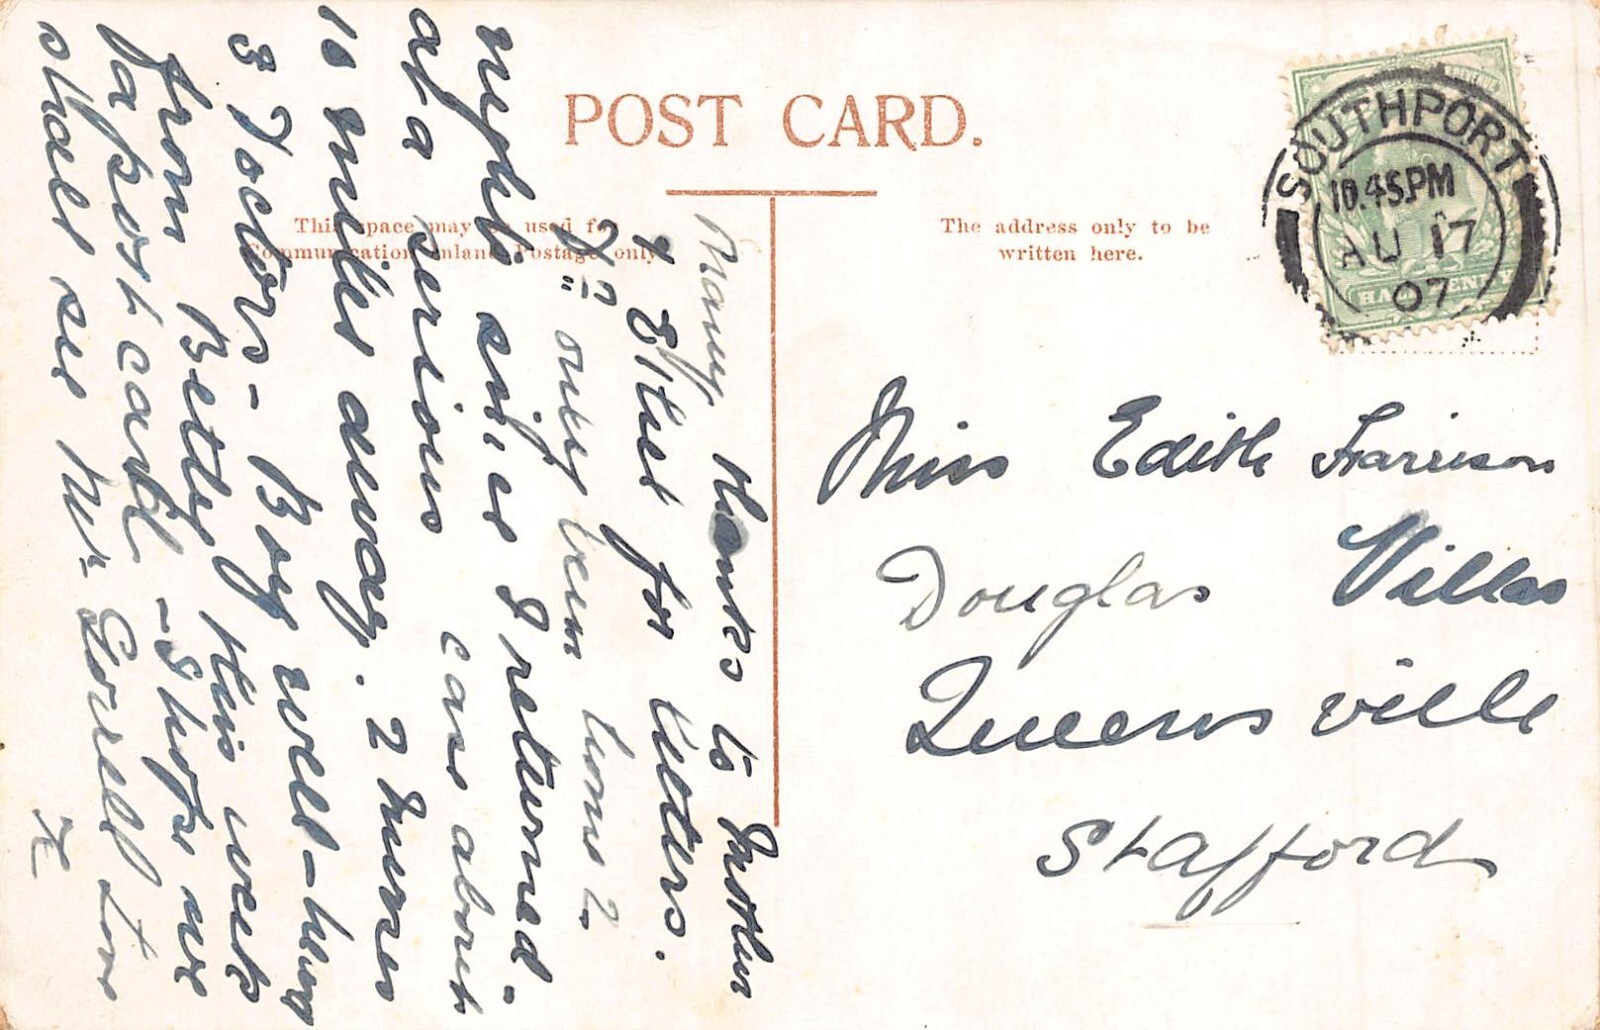 POST CARD.
This space may be used for
Communication Inland Postage only
The address only to be
written here.
SOUTHPORT
10.45PM
AU 17
07
HALFPENNY
Miss Edith Harrison
Douglas Villas
Queensville
Stafford
Many thanks to Mother
& Ethel for letters.
only been home 2
nights since I returned.
at a serious case about
10 miles away. 2 Nurses
3 Doctors - Boy well -
from Betty this week
pa post card - I hope we
shall see Mr. Gorrell Love